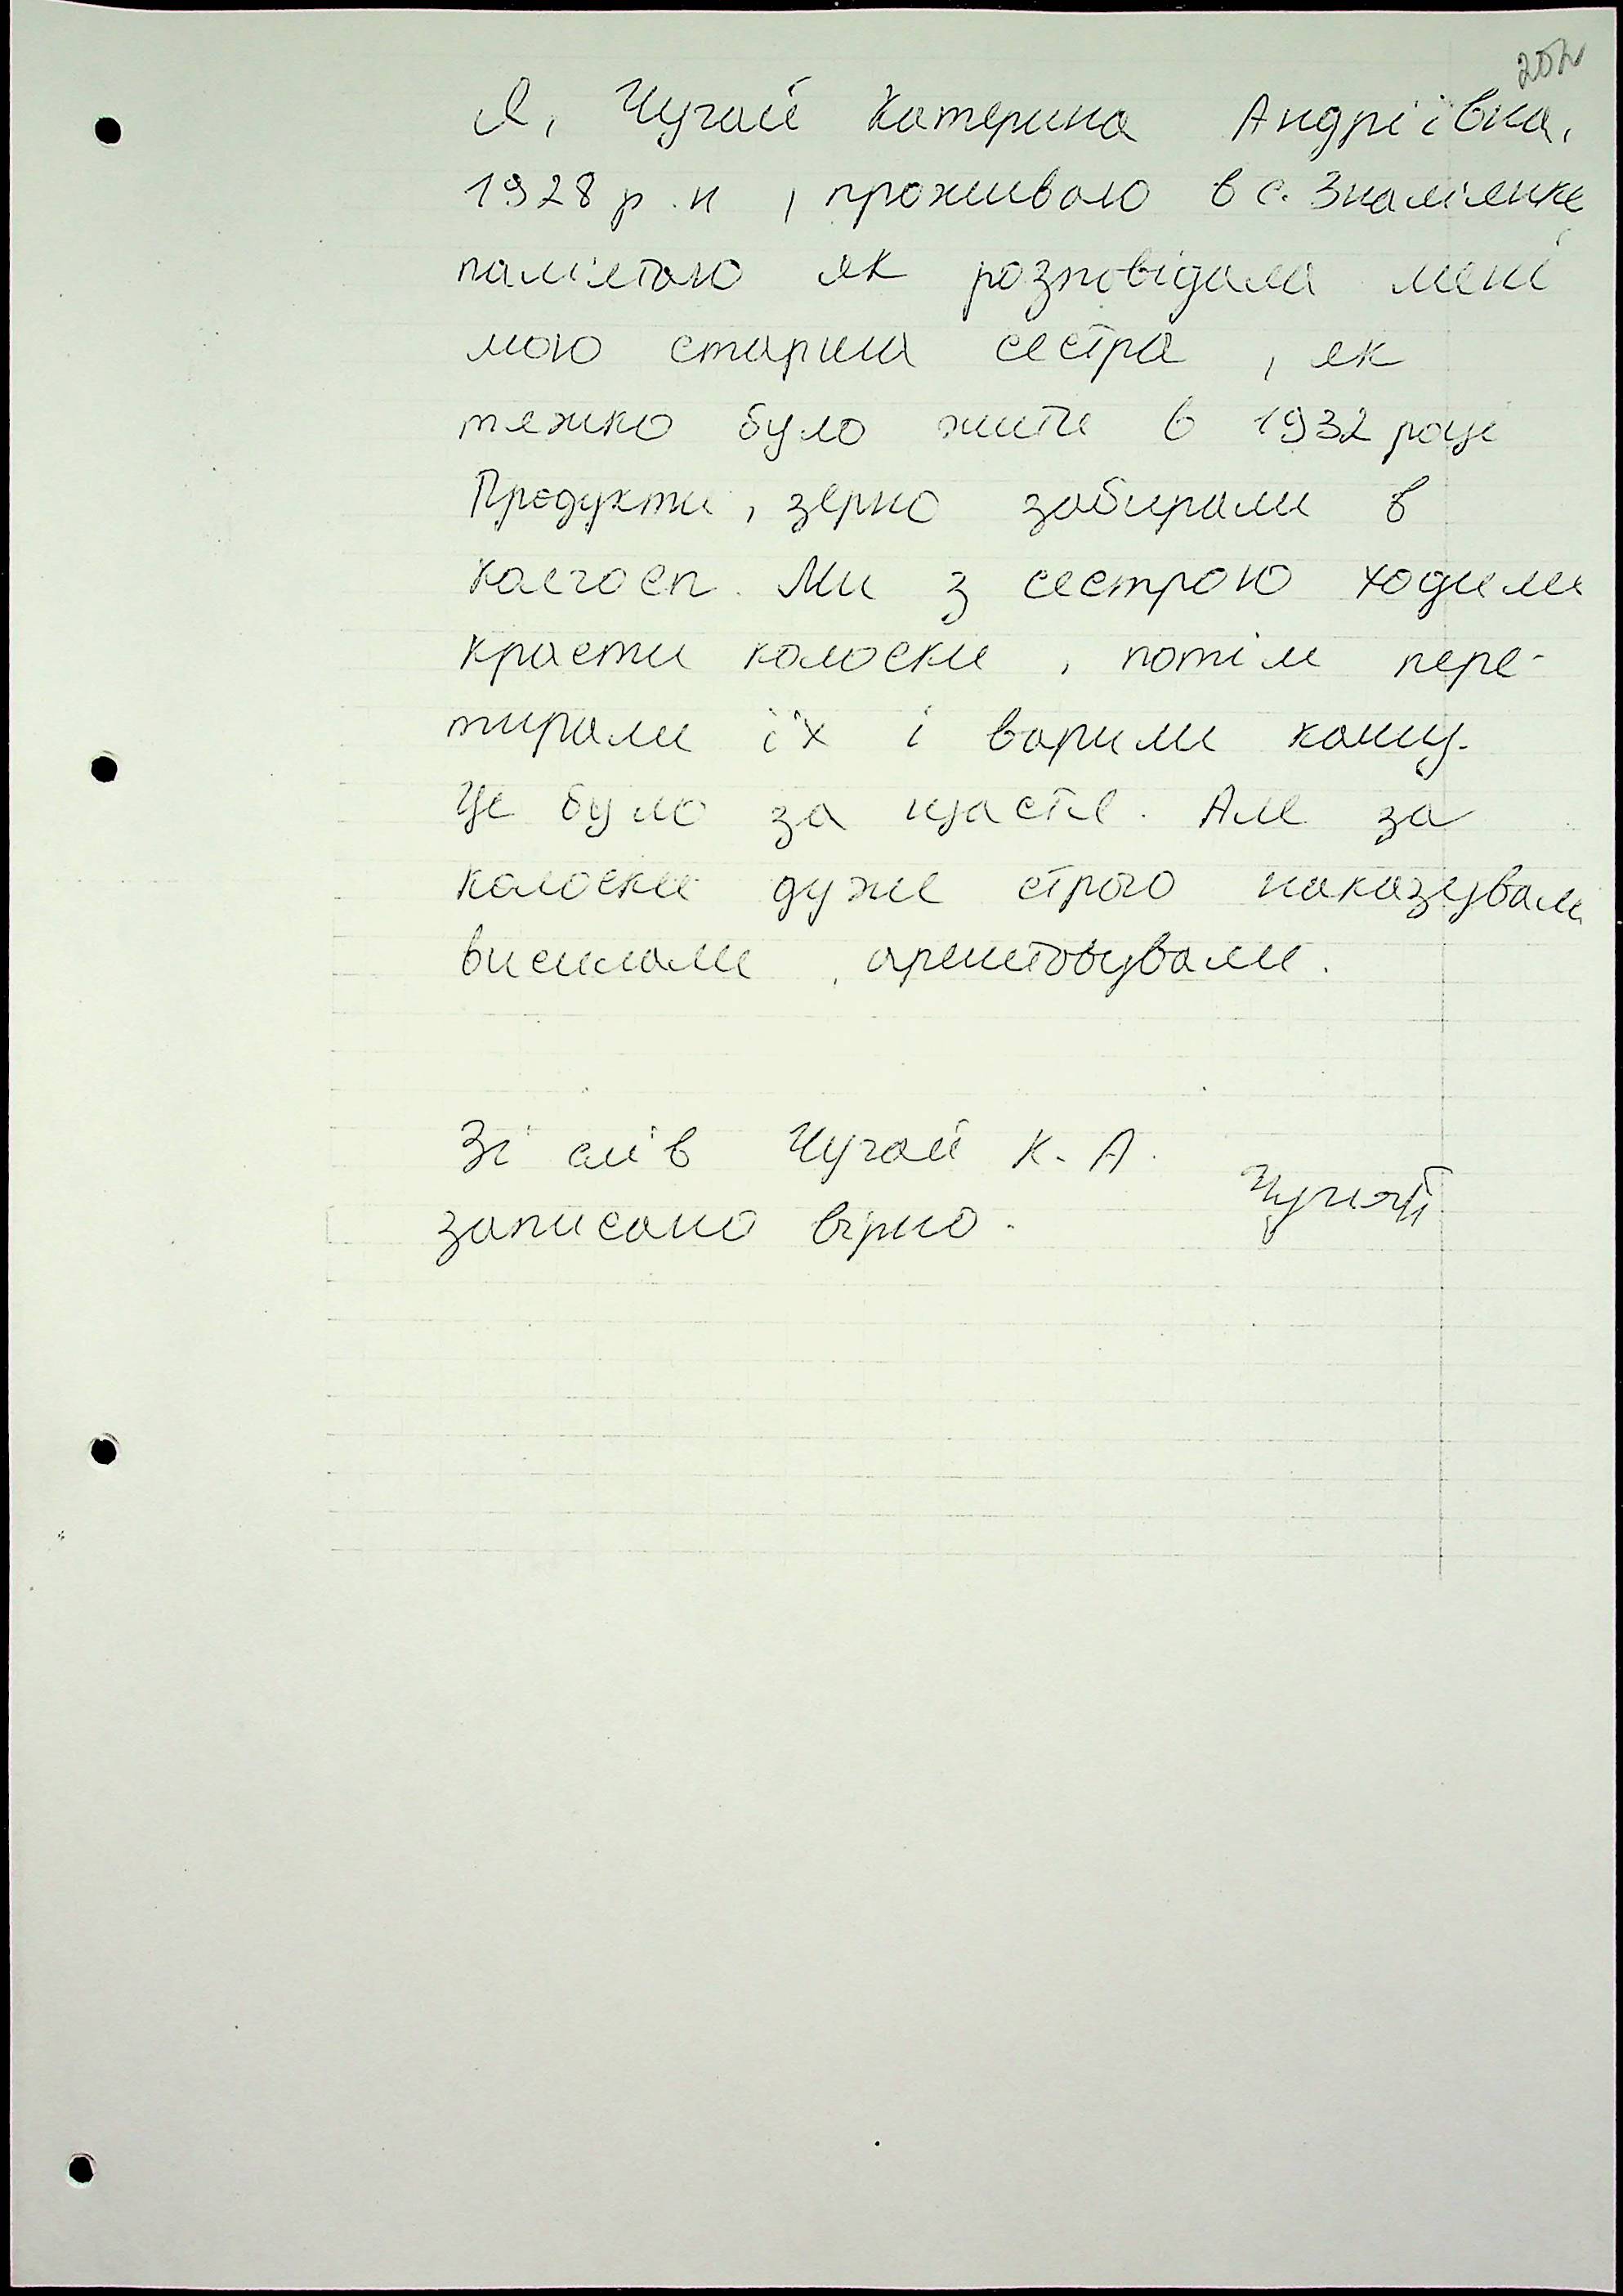 202
Я, Чугай Катерина Андріївна,
1928 р.н, проживаю в с. Знам'янка
пам'ятаю як розповідала мені
мою старша сестра, як
тяжко було жити в 1932 році
Продукти, зерно забирали в
колгосп. Ми з сестрою ходили
красти колоски, потім пере-
тирали їх і варили кашу.
Це було за щастє. Але за
колоски дуже строго наказували
висилали, арештовували.
Зі слів Чугай К. А.
записано вірно. Чугай